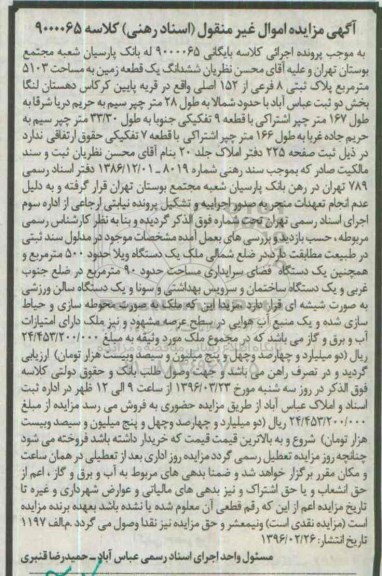 آگهی مزایده اموال غیر منقول (اسناد رهنی) کلاسه ۹۰۰۰۰۶۵
به موجب پرونده اجرائی کلاسه بایگانی ۹۰۰۰۰۶۵ له بانک پارسیان شعبه مجتمع
بوستان تهران و علیه آقای محسن نظریان ششدانگ یک قطعه زمین به مساحت ۵۱۰۳
مترمربع پلاک ثبتی ۸ فرعی از ۱۵۲ اصلی واقع در قریه پایین کرکاس دهستان لنگا
بخش دو ثبت عباس آباد با حدود شمالا به طول ۲۸ متر چپر سیم به حریم دریا شرقا به
طول ۱۶۷ متر چپر اشتراکی با قطعه ۹ تفکیکی جنوبا به طول ۳۳/۳۰ متر چپر سیم به
حریم جاده غربا به طول ۱۶۶ متر چپر اشتراکی با قطعه ۷ تفکیکی حقوق ارتفاقی ندارد
در ذیل ثبت صفحه ۲۲۵ دفتر املاک جلد ۲۰ بنام آقای محسن نظریان ثبت و سند
مالکیت صادر که بموجب سند رهنی شماره ۸۰۱۹ ـ ۱۳۸۶/۱۲/۰۱ دفتر اسناد رسمی
۷۸۹ تهران در رهن بانک پارسیان شعبه مجتمع بوستان تهران قرار گرفته و به دلیل
عدم انجام تعهدات منجر به صدور اجراییه و تشکیل پرونده نیابتی ارجاعی از اداره سوم
اجرای اسناد رسمی تهران تحت شماره فوق الذکر گردیده و بنا به نظر کارشناس رسمی
مربوطه، حسب بازدید و بررسی های بعمل آمده مشخصات موجود در مدلول سند ثبتی
در طبیعت مطابقت دارد در ضلع شمالی ملک یک دستگاه ویلا حدود ۵۰۰ مترمربع و
همچنین یک دستگاه فضای سرایداری مساحت حدود ۹۰ مترمربع در ضلع جنوب
غربی و یک دستگاه ساختمان و سرویس بهداشتی و سونا و یک دستگاه سالن ورزشی
به صورت شیشه ای قرار دارد ضریدا این که ملک به صورت محوطه سازی و حیاط
سازی شده و یک منبع آب هوایی در سطح عرصه مشهود و نیز ملک دارای امتیازات
آب و برق و گاز می باشد که در مجموع ملک مورد وثیقه به مبلغ ۲۴/۴۵۳/۲۰۰/۰۰۰
ریال (دو میلیارد و چهارصد و چهل و پنج میلیون و سیصد و بیست هزار تومان) ارزیابی
گردید و در تصرف راهن می باشد و جهت وصول طلب بانک و حقوق دولتی کلاسه
فوق الذکر در روز سه شنبه مورخ ۱۳۹۶/۰۳/۲۳ از ساعت ۹ الی ۱۲ ظهر در اداره ثبت
اسناد و املاک عباس آباد از طریق مزایده حضوری به فروش می رسد مزایده از مبلغ
۲۴/۴۵۳/۲۰۰/۰۰۰ ریال (دو میلیارد و چهارصد و چهل و پنج میلیون و سیصد و بیست
هزار تومان) شروع و به بالاترین قیمت که خریدار داشته باشد فروخته می شود
چنانچه روز مزایده تعطیل رسمی گردد مزایده روز اداری بعد از تعطیلی در همان ساعت
و مکان مقرر برگزار خواهد شد و ضمنا بدهی های مربوط به آب و برق و گاز، اعم از
حق انشعاب و یا حق اشتراک و نیز بدهی های مالیاتی و عوارض شهرداری و غیره تا
تاریخ مزایده اعم از این که رقم قطعی آن معلوم شده یا نشده باشد بعهده برنده مزایده
است (مزایده نقدی است) و نیمعشر و حق مزایده نیز نقدا وصول می گردد. م.الف ۱۱۹۷
تاریخ انتشار: ۱۳۹۶/۰۲/۲۶
مسئول واحد اجرای اسناد رسمی عباس آباد ـ حمیدرضا قنبری